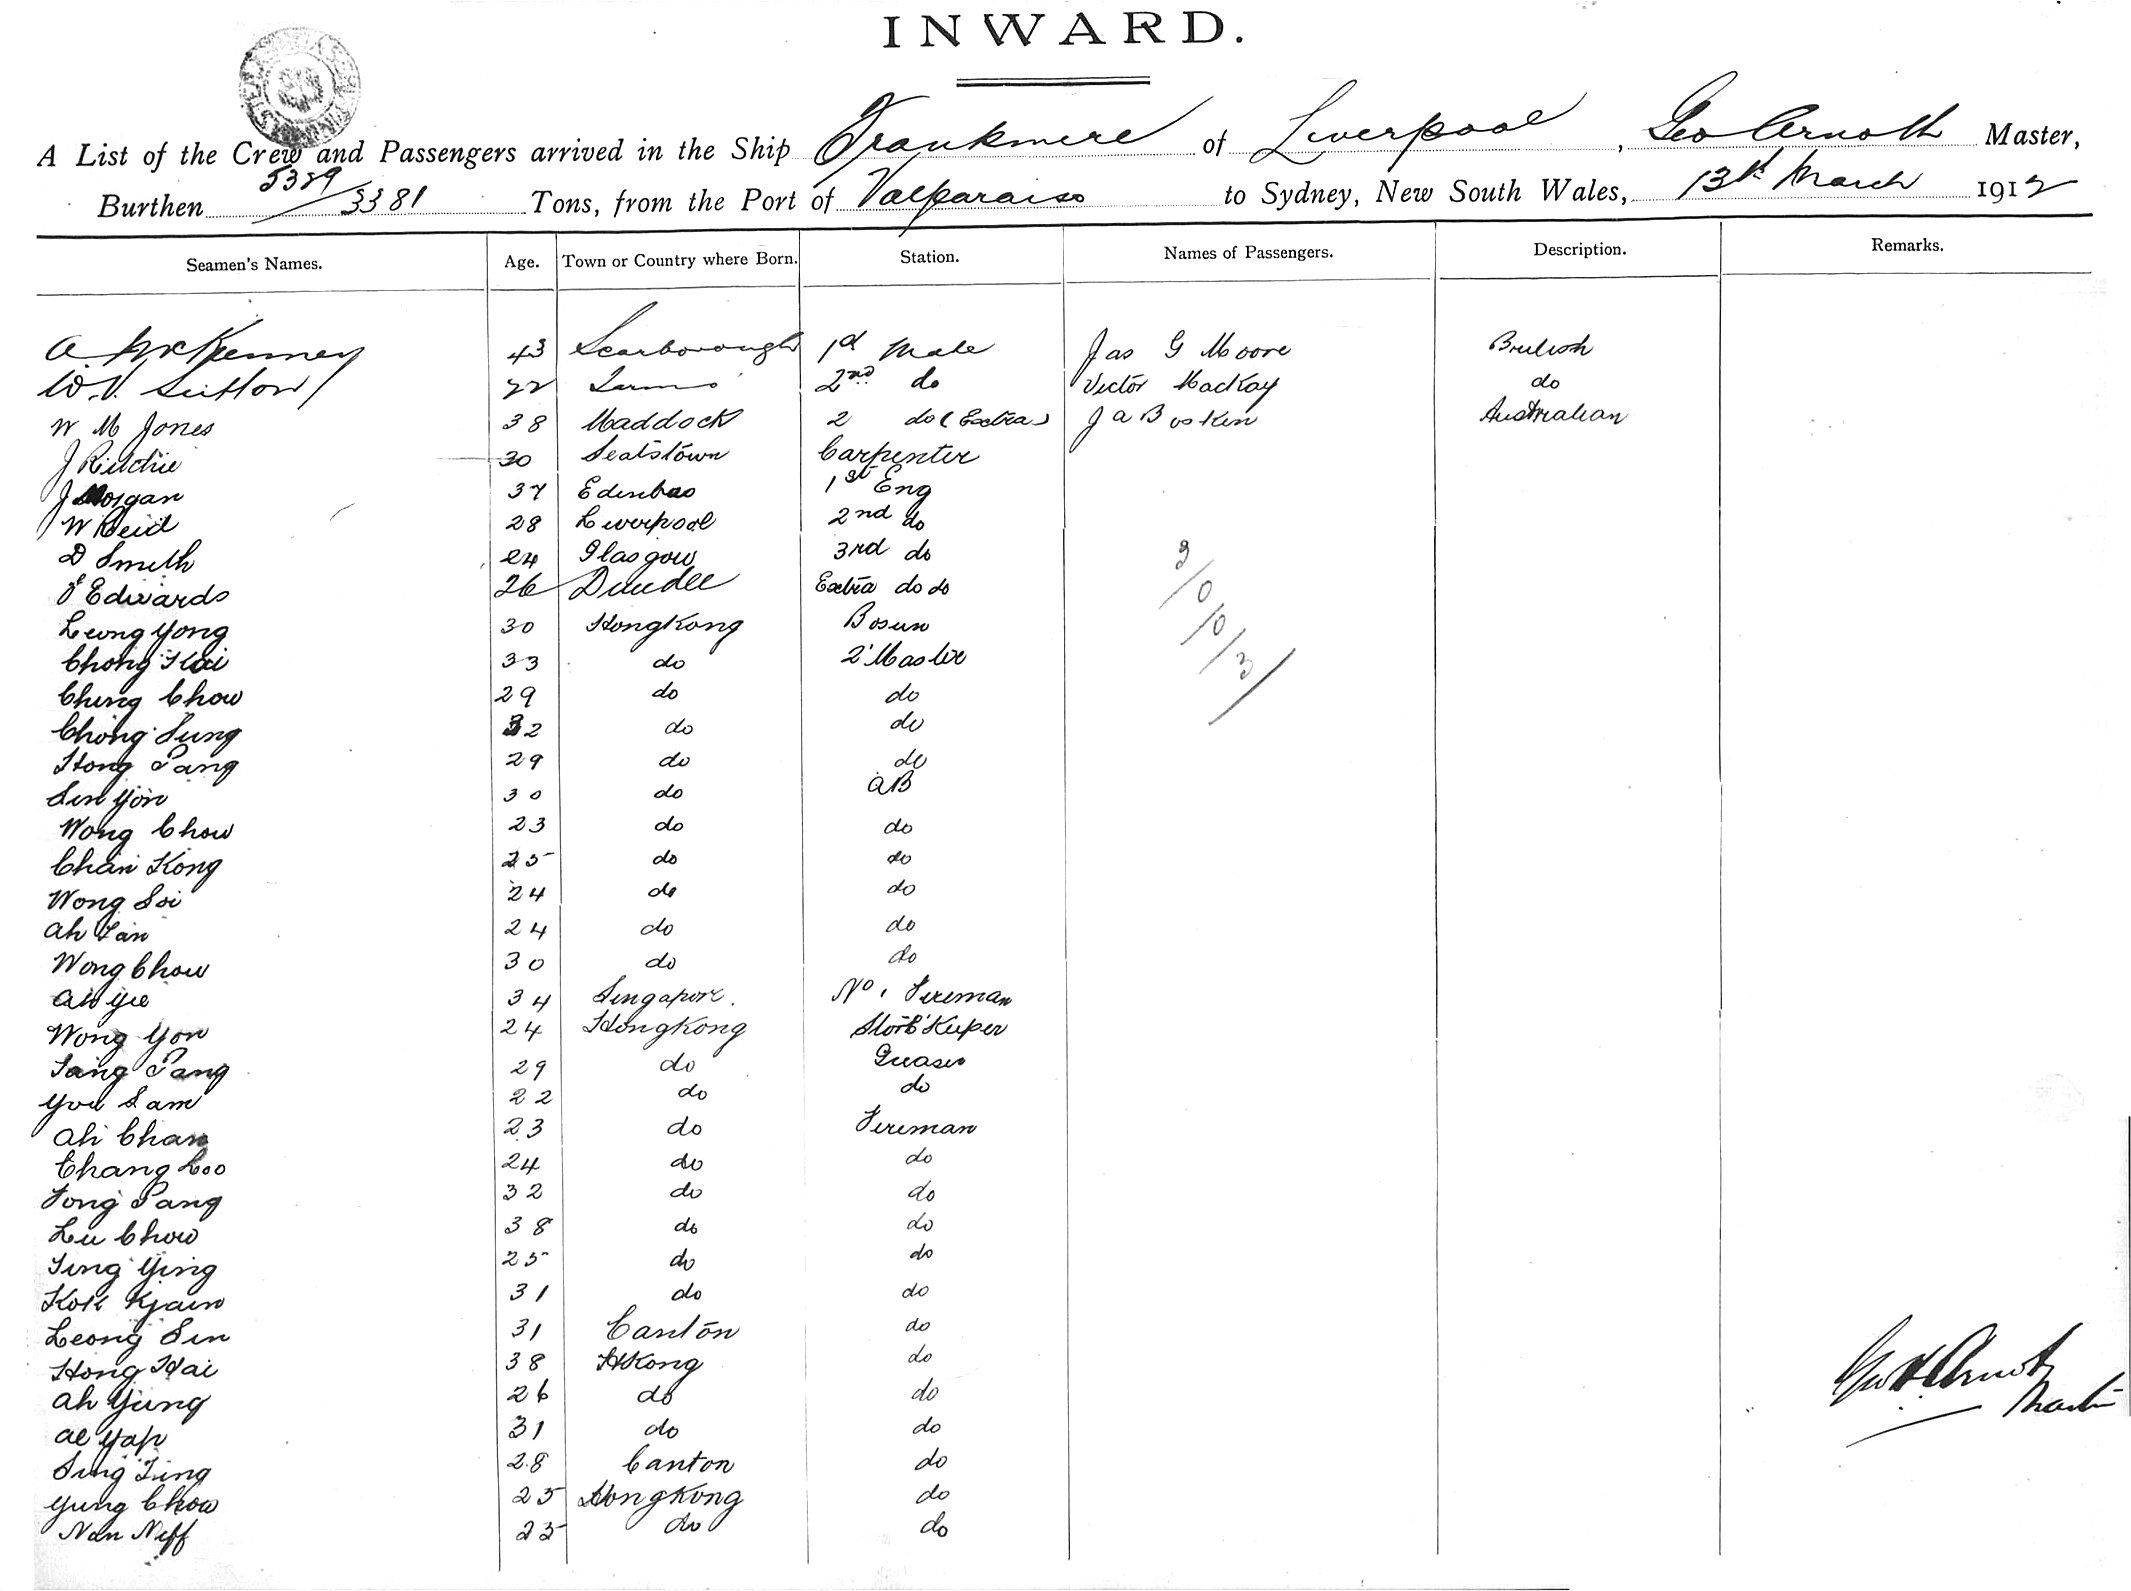 INWARD.
A List of the Crew and Passengers arrived in the Ship Frankmere of Liverpool, Geo Arnoth Master,
Burthen 5389/3381 Tons, from the Port of Valparaiso to Sydney, New South Wales, 13th March 1912
Seamen's Names. Age. Town or Country where Born. Station. Names of Passengers. Description. Remarks.
A McKenney 43 Scarborough 1st Mate Jas G Moore British
Sutton 22 2nd do Victor MacKay do
W M Jones 38 Maddock 2 do (Extra) J A Bosken Australian
J Ritchie 30 Seatstown Carpenter
J Morgan 37 Edinbro 1st Eng
W Reid 28 Liverpool 2nd do
D Smith 24 Glasgow 3rd do
E Edwards 26 Dundee Extra do do
Leong Yong 30 HongKong Bosun
Chong Hoi 33 do 2'Master
Ching Chow 29 do do
Chong Sung 32 do do
Hong Pang 29 do do
Sin Yon 30 do AB
Wong Chow 23 do do
Chan Kong 25 do do
Wong Soi 24 do do
Ah Tan 24 do do
Wong Chow 30 do do
Ah Yee 34 Singapore. No 1 Fireman
Wong Yon 24 HongKong Store Keeper
Sang Pang 29 do Greaser
You Sam 22 do do
Ah Chan 23 do Fireman
Chang Loo 24 do do
Fong Pang 32 do do
Lee Chow 38 do do
Sing Ying 25 do do
Kok Kjain 31 do do
Leong Sin 31 Canton do
Hong Hai 38 HKong do
Ah Yung 26 do do
Ae Yap 31 do do
Sing Ting 28 Canton do
Yung Chow 25 HongKong do
Nan Neff 25 do do
3/0/0/3/
Geo H Arnoth
Master